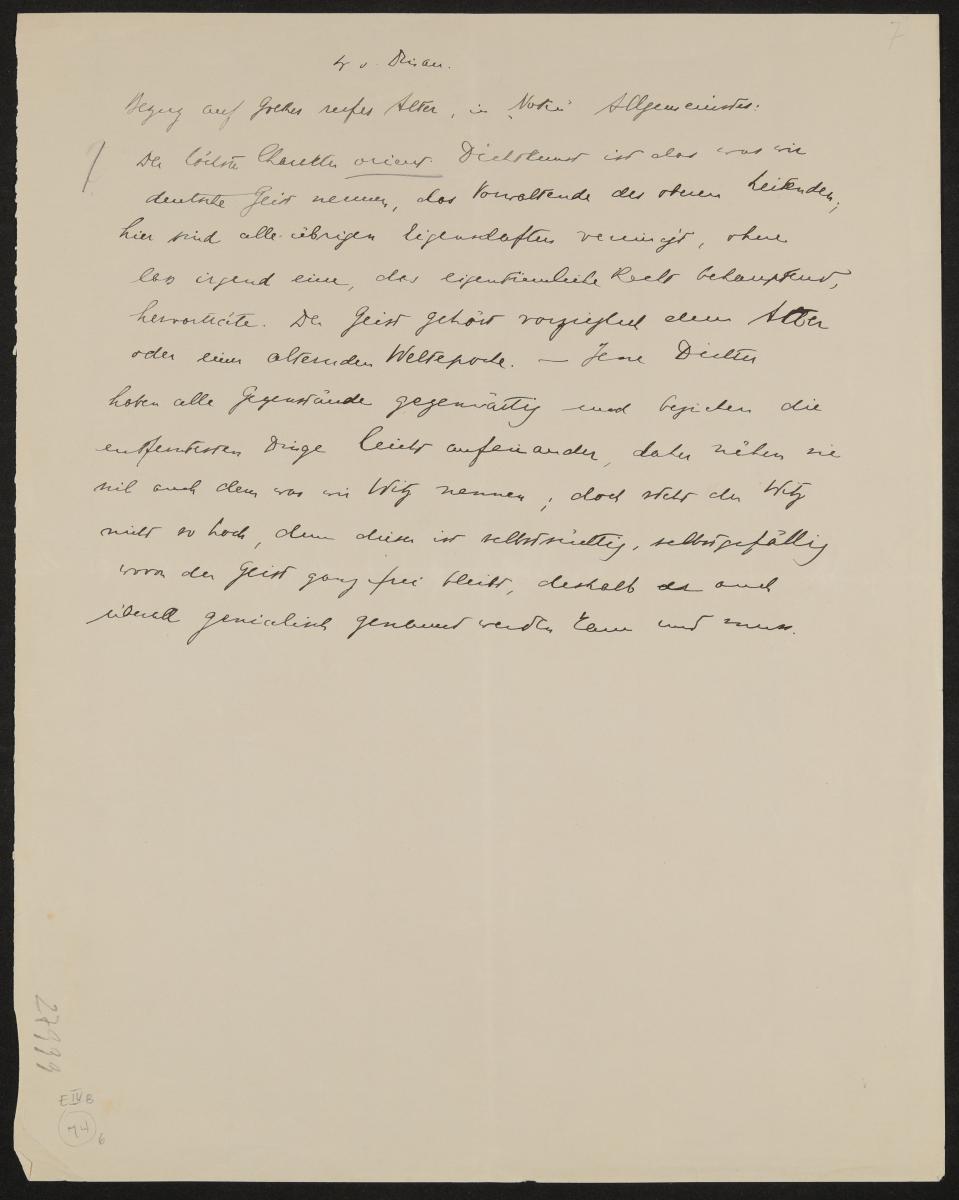 7
W. ö. Divan.
Bezug auf Goethes reifes Alter, in Notiz Allgemeinstes:
Der höchste Charakter orient. Dichtkunst ist das was wir
deutsche Geist nennen, das Vorwaltende des oberen Leitenden;
hier sind alle übrigen Eigenschaften vereinigt, ohne
dass irgend eine, das eigentümliche Recht behauptend,
hervorträte. Der Geist gehört vorzüglich dem Alter
oder einer alternden Weltepoche. — Jene Dichter
haben alle Gegenstände gegenwärtig und beziehen die
entferntesten Dinge leicht aufeinander, daher nähern sie
sich auch dem was wir Witz nennen; doch steht der Witz
nicht so hoch, denn dieser ist selbstsüchtig, selbstgefällig
wovon der Geist ganz frei bleibt, deshalb er auch
überall genialisch genannt werden kann und muss.
27999
E IV B
74
6